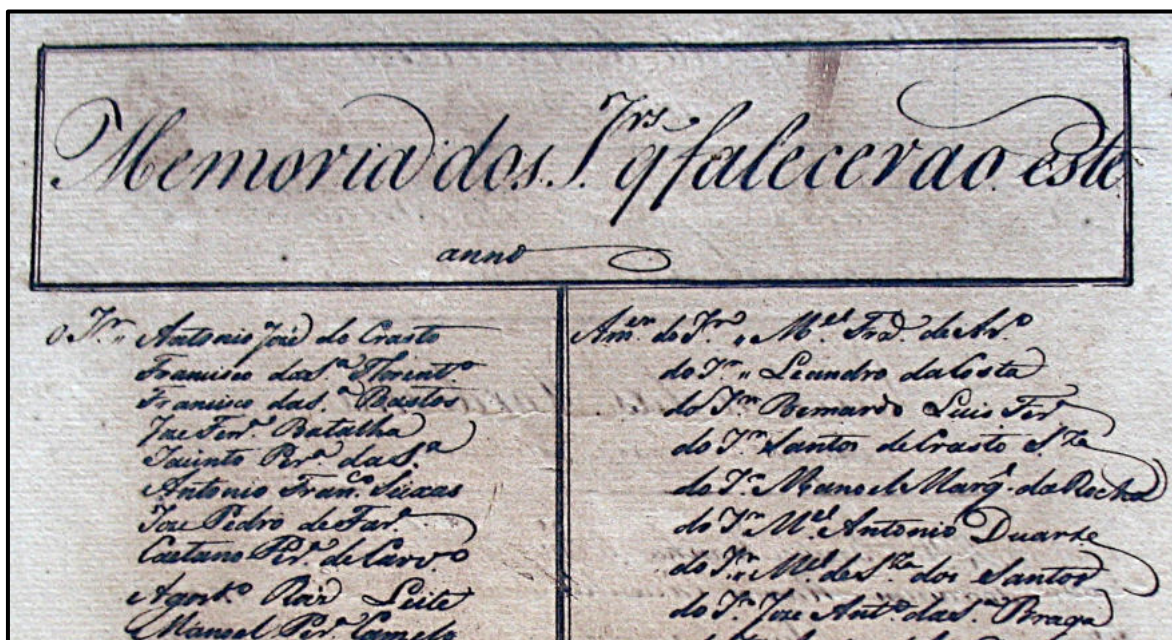 Memoria dos Irs. q falecerao este
anno
o Ir. Antonio Joze do Crasto
Francisco da S.ª Florent.º
Francisco da S.ª Bastos
Joze Fer.ª Batalha
Jacinto Per.ª da S.ª
Antonio Fran.co Seixas
Joze Pedro de Far.ª
Caetano Per.ª de Carv.º
Agost.º Roiz Leite
Manoel Per.ª Camelo
do Ir. M.el de Ar.º
do Ir. Leandro da Costa
do Ir. Bernardo Luis Fer.ª
do Ir. Santos de Crasto S.za
do Ir. Manoel Marq.s da Rocha
do Ir. M.el Antonio Duarte
do Ir. M.el de S.za dos Santos
do Ir. Joze Ant.º da S.ª Braga